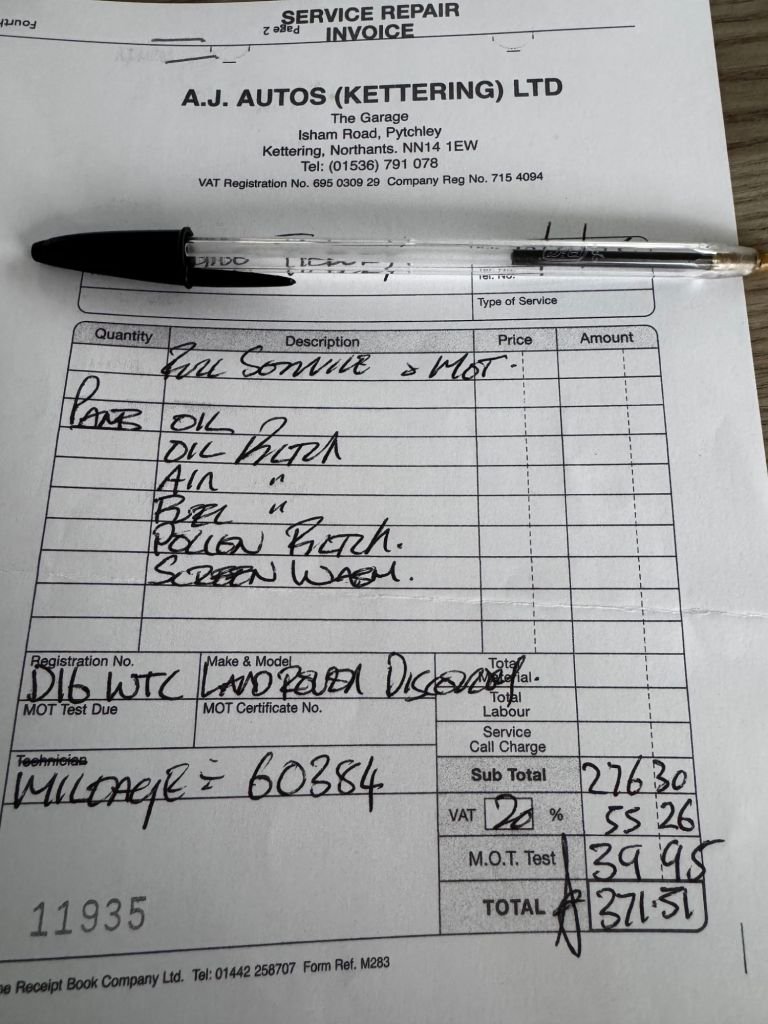 SERVICE REPAIR
Page 2 INVOICE
A.J. AUTOS (KETTERING) LTD
The Garage
Isham Road, Pytchley
Kettering, Northants. NN14 1EW
Tel: (01536) 791 078
VAT Registration No. 695 0309 29 Company Reg No. 715 4094
Tel. No.
Type of Service
Quantity Description Price Amount
FULL SERVICE & MOT.
PARTS OIL
OIL FILTER
AIR "
FUEL "
POLLEN FILTER.
SCREEN WASH.
Registration No. Make & Model Total Material
D16 WTC LAND ROVER DISCOVERY.
MOT Test Due MOT Certificate No. Total Labour
Service Call Charge
Technician
MILEAGE = 60384
Sub Total 276 30
VAT 20 % 55 26
M.O.T. Test 39 95
TOTAL 371.51
11935
Receipt Book Company Ltd. Tel: 01442 258707 Form Ref. M283